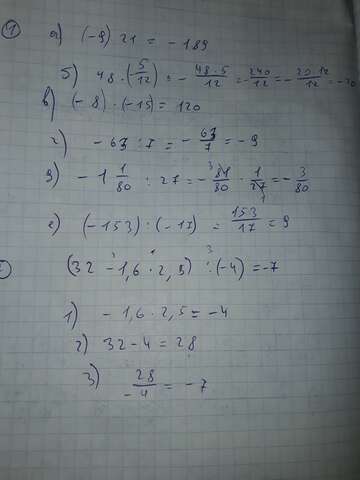 1 а) (-9) 21 = -189
б) 48 · (5/12) = - 48·5/12 = - 240/12 = - 20·12/12 = -20
в) (-8) · (-15) = 120
г) -63 : 7 = - 63/7 = -9
д) -1 1/80 : 27 = - 81/80 · 1/27 = - 3/80
е) (-153) : (-17) = 153/17 = 9
(32 - 1,6 · 2,5) : (-4) = -7
1) -1,6 · 2,5 = -4
2) 32 - 4 = 28
3) 28/-4 = -7